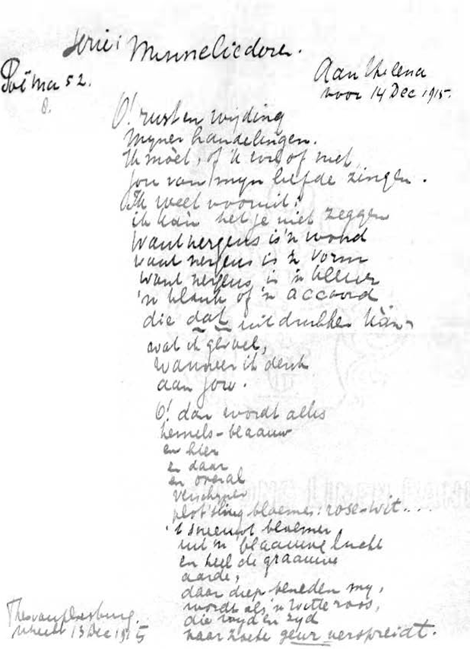 Serie: Minneliederen.
Poëma 52.
8.
Aan Helena
voor 14 Dec 1915.
O! rust en wijding
mijner handelingen.
Ik moèt, of ik wil of niet,
jou van mijn liefde zingen.
Ik weet vooruit:
ik kàn het je niet zeggen
want nergens is 'n woord
want nergens is 'n vorm
want nergens is 'n kleur
'n klank of 'n accoord
die dàt uitdrukken kàn-
wat ik gevoel,
wanneer ik denk
aan jou.
O! dan wordt alles
hemels-blaauw
en hier
en daar
en overal
verschijnen
plots'ling bloemen: rose-wit...
't sneeuwt bloemen
uit 'n blaauwe lucht
en heel de graauwe
aarde,
daar diep beneden mij,
wordt als 'n witte roos,
die wijd en zijd
haar zoete geur verspreidt.
Theo van Doesburg.
Utrecht 13 Dec 1915